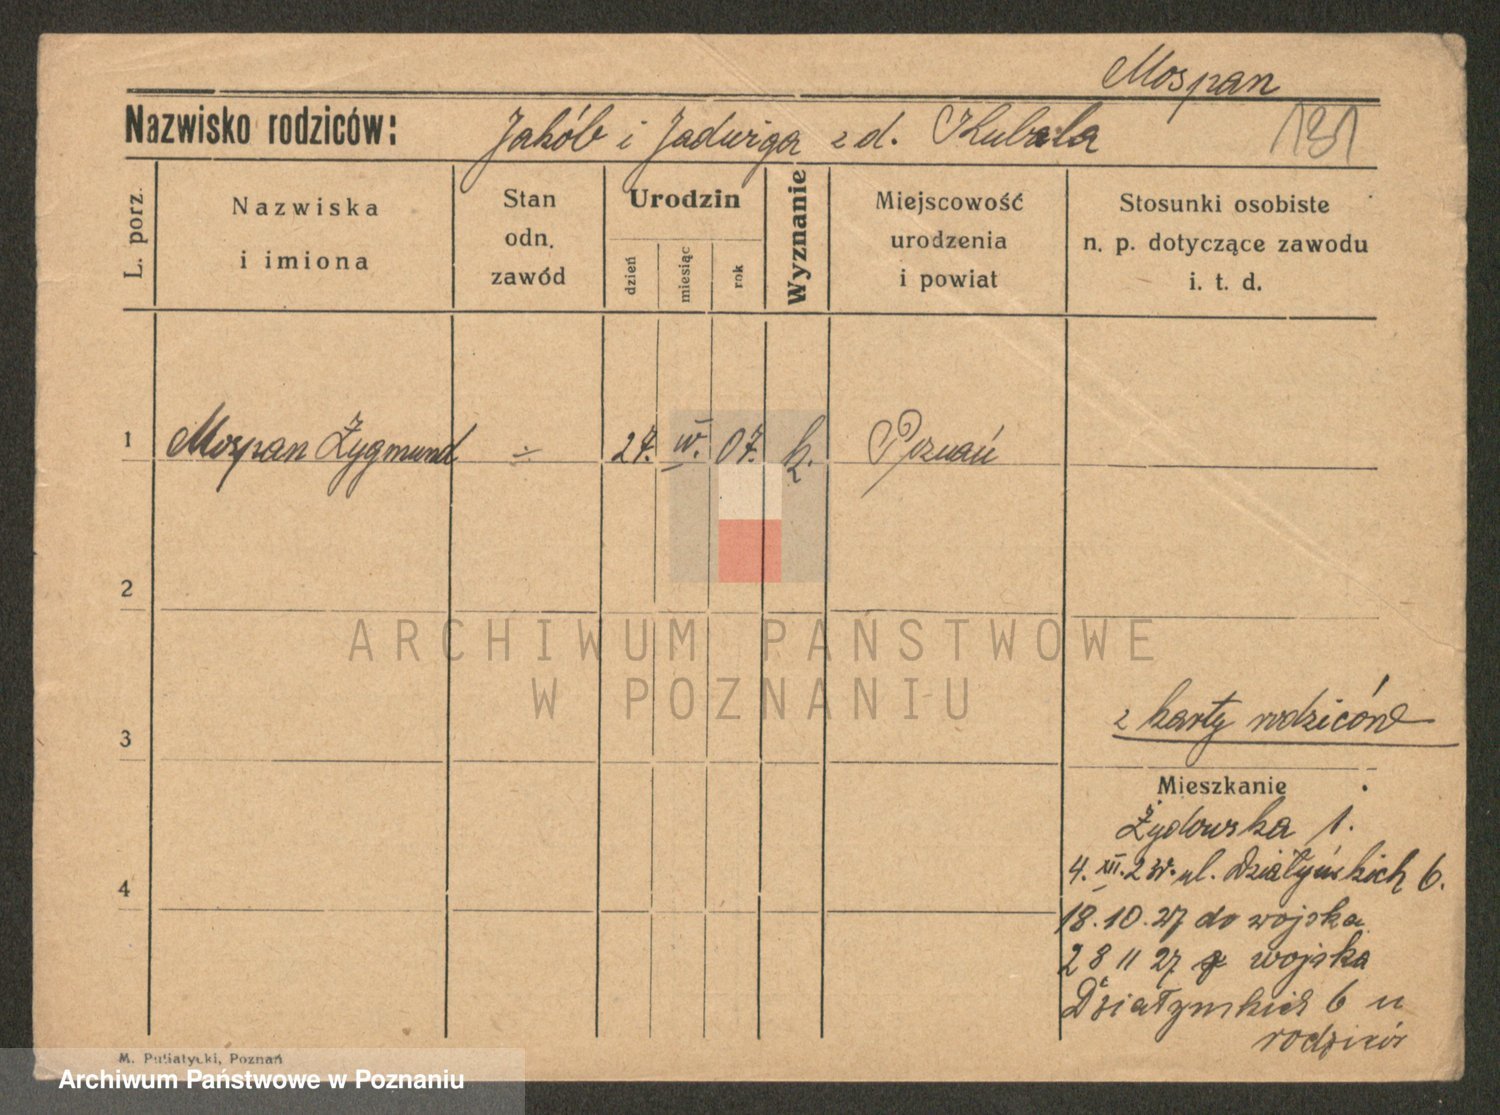 Mospan
Nazwisko rodziców: Jakób i Jadwiga z d. Kubala 131
L. porz.
Nazwiska i imiona
Stan odn. zawód
Urodzin
dzień miesiąc rok
Wyznanie
Miejscowość urodzenia i powiat
Stosunki osobiste n. p. dotyczące zawodu i. t. d.
1 Mospan Zygmund ÷ 27. IV. 07. k. Poznań
2
ARCHIWUM PAŃSTWOWE
W POZNANIU
z karty rodziców
3
Mieszkanie
Żydowska 1.
4. XII. 23. ul. Działyńskich 6.
4
18.10.27 do wojska
28 11 27 z wojska
Działyńskich 6 u
rodziców
M. Putiatycki, Poznań
Archiwum Państwowe w Poznaniu